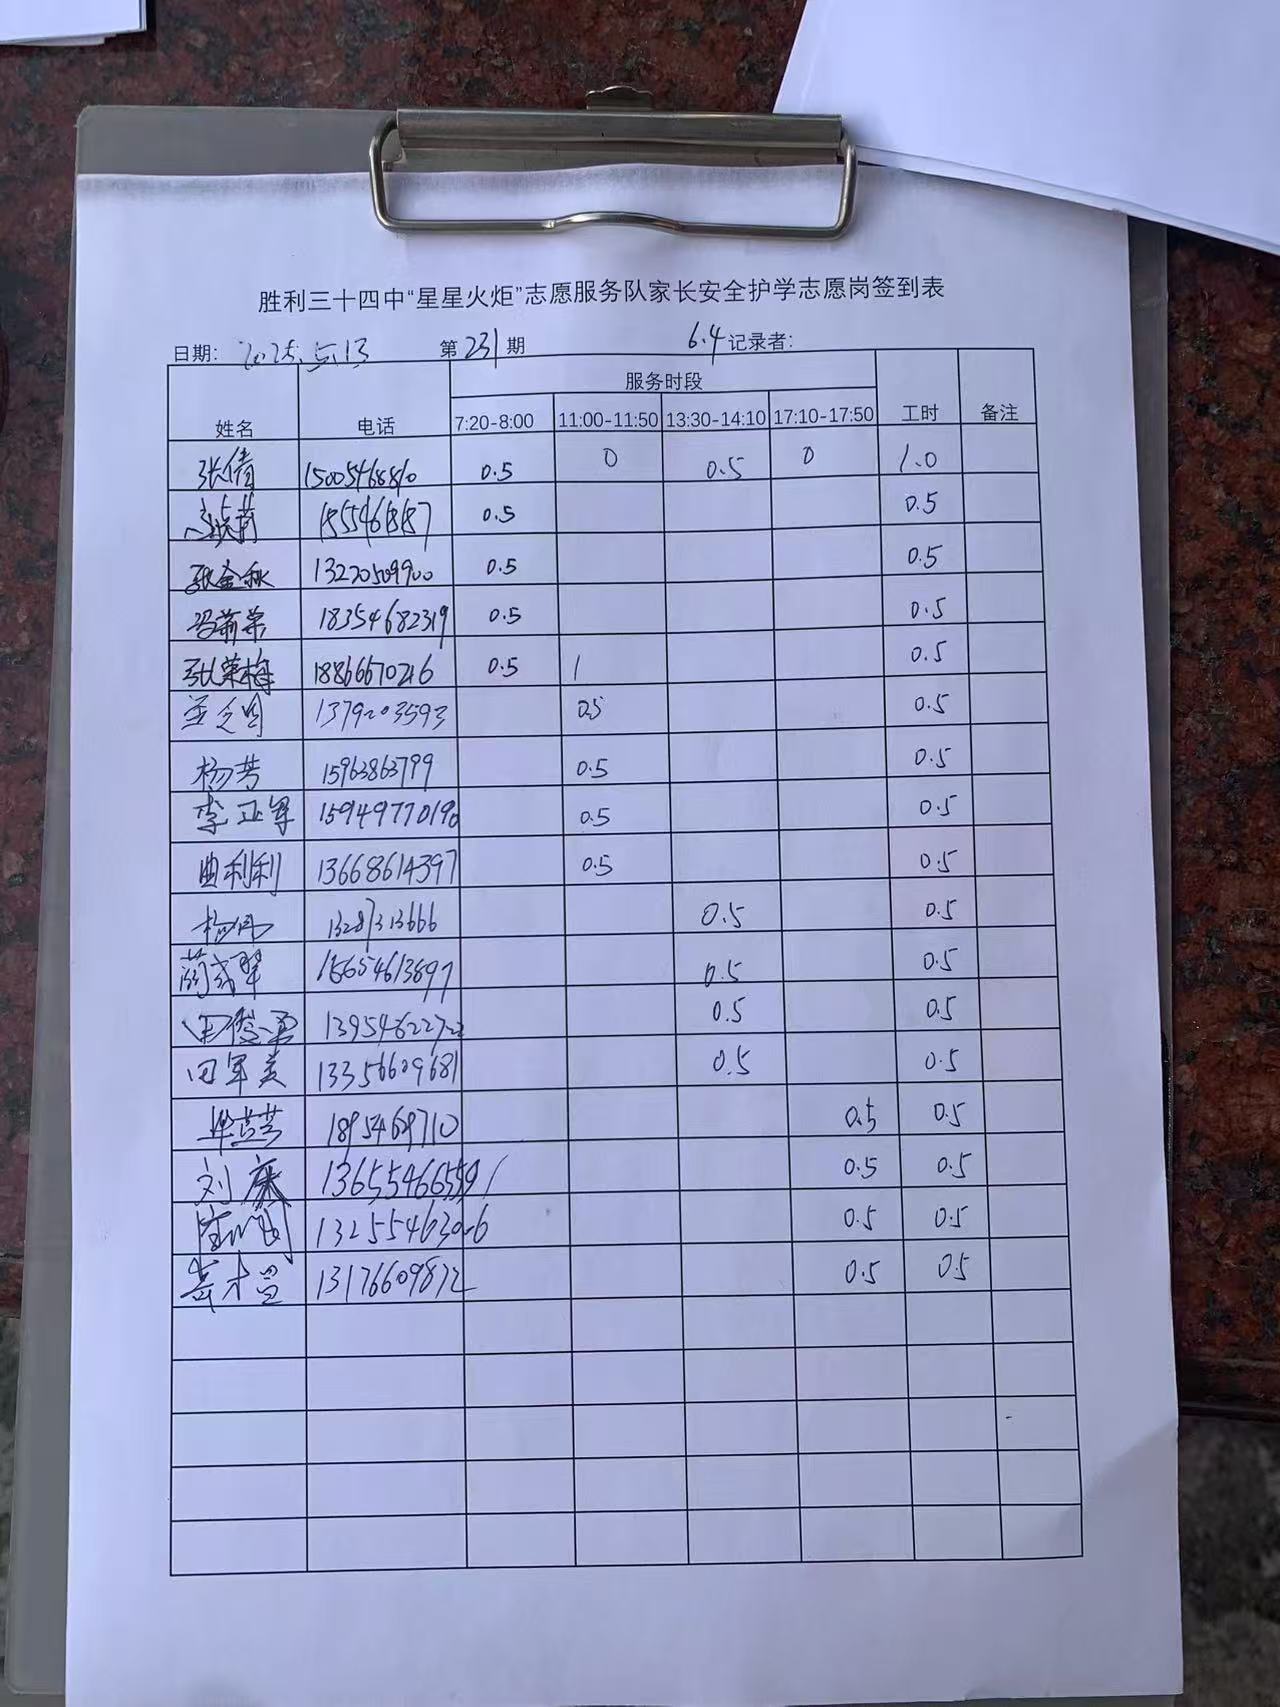 胜利三十四中“星星火炬”志愿服务队家长安全护学志愿岗签到表
日期: 2025.5.13 第231期 6.4 记录者:
服务时段
姓名 电话 7:20-8:00 11:00-11:50 13:30-14:10 17:10-17:50 工时 备注
张倩 15005468810 0.5 0 0.5 0 1.0
0.5 0.5
张金秋 13220509900 0.5 0.5
冯莉荣 18354682319 0.5 0.5
张荣梅 18866670216 0.5 1 0.5
1379203593 0.5 0.5
杨芳 15963863799 0.5 0.5
李亚军 15949770190 0.5 0.5
曲利利 13668614397 0.5 0.5
杨伟 0.5 0.5
蔺成翠 15654613897 0.5 0.5
田俊勇 0.5 0.5
田军美 13356609681 0.5 0.5
18954689710 0.5 0.5
刘康 0.5 0.5
0.5 0.5
13176609872 0.5 0.5